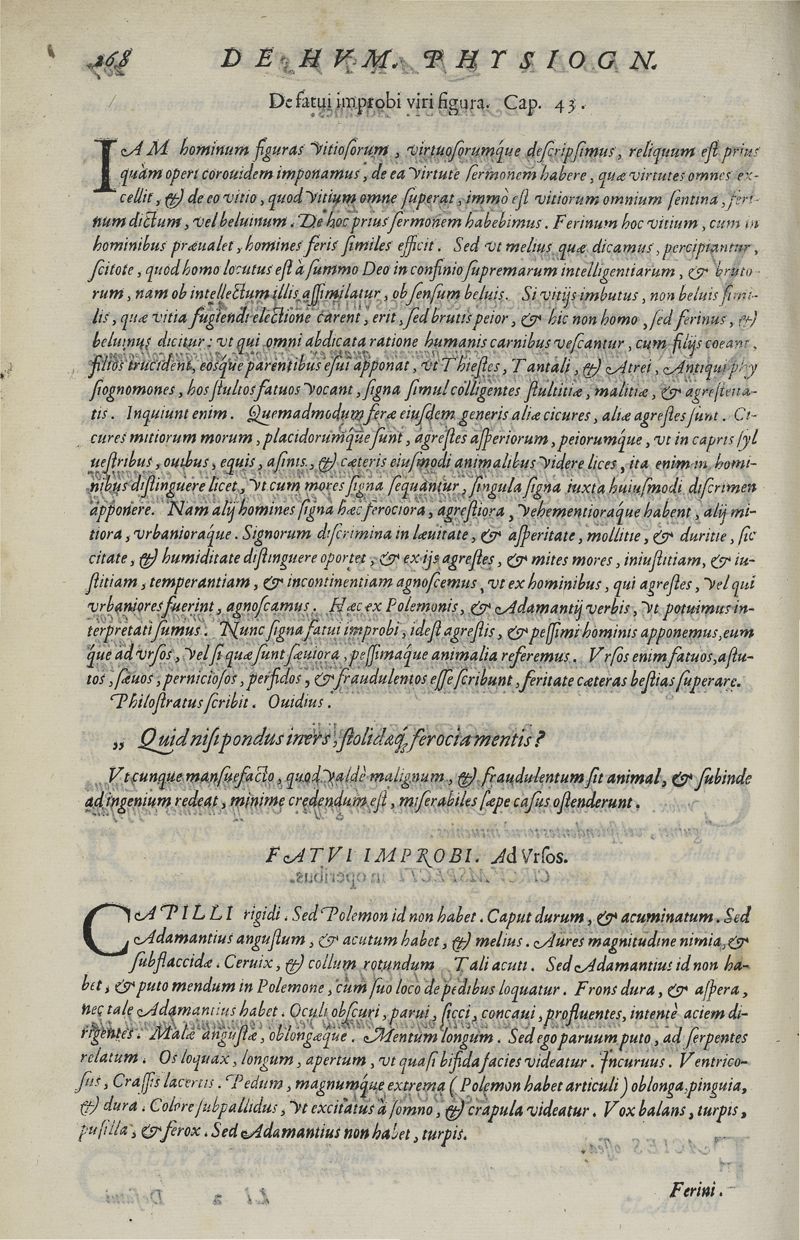 268 DE HVM. PHYSIOGN.
De fatui improbi viri figura. Cap. 43.
IAM hominum figuras vitiosorum, virtuosorumq́ue descripsimus, reliquum est prius
quàm operi coronidem imponamus, de ea virtute sermonem habere, quæ virtutes omnes ex-
cellit, & de eo vitio, quod vitium omne superat, immò est vitiorum omnium sentina, feri-
num dictum, vel beluinum. De hoc prius sermonem habebimus. Ferinum hoc vitium, cum in
hominibus præualet, homines feris similes efficit. Sed vt melius quæ dicamus, percipiantur,
scitote, quod homo locutus est à summo Deo in confinio supremarum intelligentiarum, & bruto-
rum, nam ob intellectum illis assimilatur, ob sensum beluis. Si vitijs imbutus, non beluis simi-
lis, quæ vitia fugiendi electione carent, erit, sed brutis peior, & hic non homo, sed ferinus, &
beluinus dicitur: vt qui omni abdicata ratione humanis carnibus vescantur, cum filijs coeant,
filios trucident, eosque parentibus esui apponat, vt Thiestes, Tantali, & Atrei, Antiqui phy
siognomones, hos stultos fatuos vocant, signa simul colligentes stultitiæ, malitiæ, & agrestita-
tis. Inquiunt enim. Quemadmodum feræ eiusdem generis aliæ cicures, aliæ agrestes sunt. Ci-
cures mitiorum morum, placidorumq́ue sunt, agrestes asperiorum, peiorumque, vt in capris syl
uestribus, ouibus, equis, asinis, & cæteris eiusmodi animalibus videre lices, ita enim in homi-
nibus distinguere licet, vt cum mores signa sequantur, singula signa iuxta huiusmodi discrimen
apponere. Nam alij homines signa hæc ferociora, agrestiora, vehementioraque habent, alij mi-
tiora, vrbanioraque. Signorum discrimina in læuitate, & asperitate, mollitie, & duritie, sic
citate, & humiditate distinguere oportet, & ex ijs agrestes, & mites mores, iniustitiam, & iu-
stitiam, temperantiam, & incontinentiam agnoscemus, vt ex hominibus, qui agrestes, vel qui
vrbaniores fuerint, agnoscamus. Hæc ex Polemonis, & Adamantij verbis, vt potuimus in-
terpretati sumus. Nunc signa fatui improbi, idest agrestis, & pessimi hominis apponemus, eum
q́ue ad vrsos, vel si quæ sunt sæuiora, pessimaque animalia referemus. Vrsos enim fatuos, astu-
tos, sæuos, perniciosos, perfidos, & fraudulentos esse scribunt, feritate cæteras bestias superare.
Philostratus scribit. Ouidius.
„ Quid nisi pondus iners, stolidaq́; ferocia mentis?
Vtcunque mansuefacto, quod valdè malignum, & fraudulentum sit animal, & subinde
ad ingenium redeat, minime credendum est, miserabiles sæpe casus ostenderunt.
FATVI IMPROBI. Ad Vrsos.
CAPILLI rigidi. Sed Polemon id non habet. Caput durum, & acuminatum. Sed
Adamantius angustum, & acutum habet, & melius. Aures magnitudine nimia, &
subflaccidæ. Ceruix, & collum rotundum Tali acuti. Sed Adamantius id non ha-
bet, & puto mendum in Polemone, cum suo loco de pedibus loquatur. Frons dura, & aspera,
nec tale Adamantius habet. Oculi obscuri, parui, sicci, concaui, profluentes, intentè aciem di-
rigentes. Malæ angustæ, oblongæque. Mentum longum. Sed ego paruum puto, ad serpentes
relatum. Os loquax, longum, apertum, vt quasi bifida facies videatur. Incuruus. Ventrico-
sus, Crassis lacertis. Pedum, magnumq́ue extrema (Polemon habet articuli) oblonga, pinguia,
& dura. Colore subpallidus, vt excitatus à somno, & crapula videatur. Vox balans, turpis,
pusilla, & ferox. Sed Adamantius non habet, turpis.
Ferini.